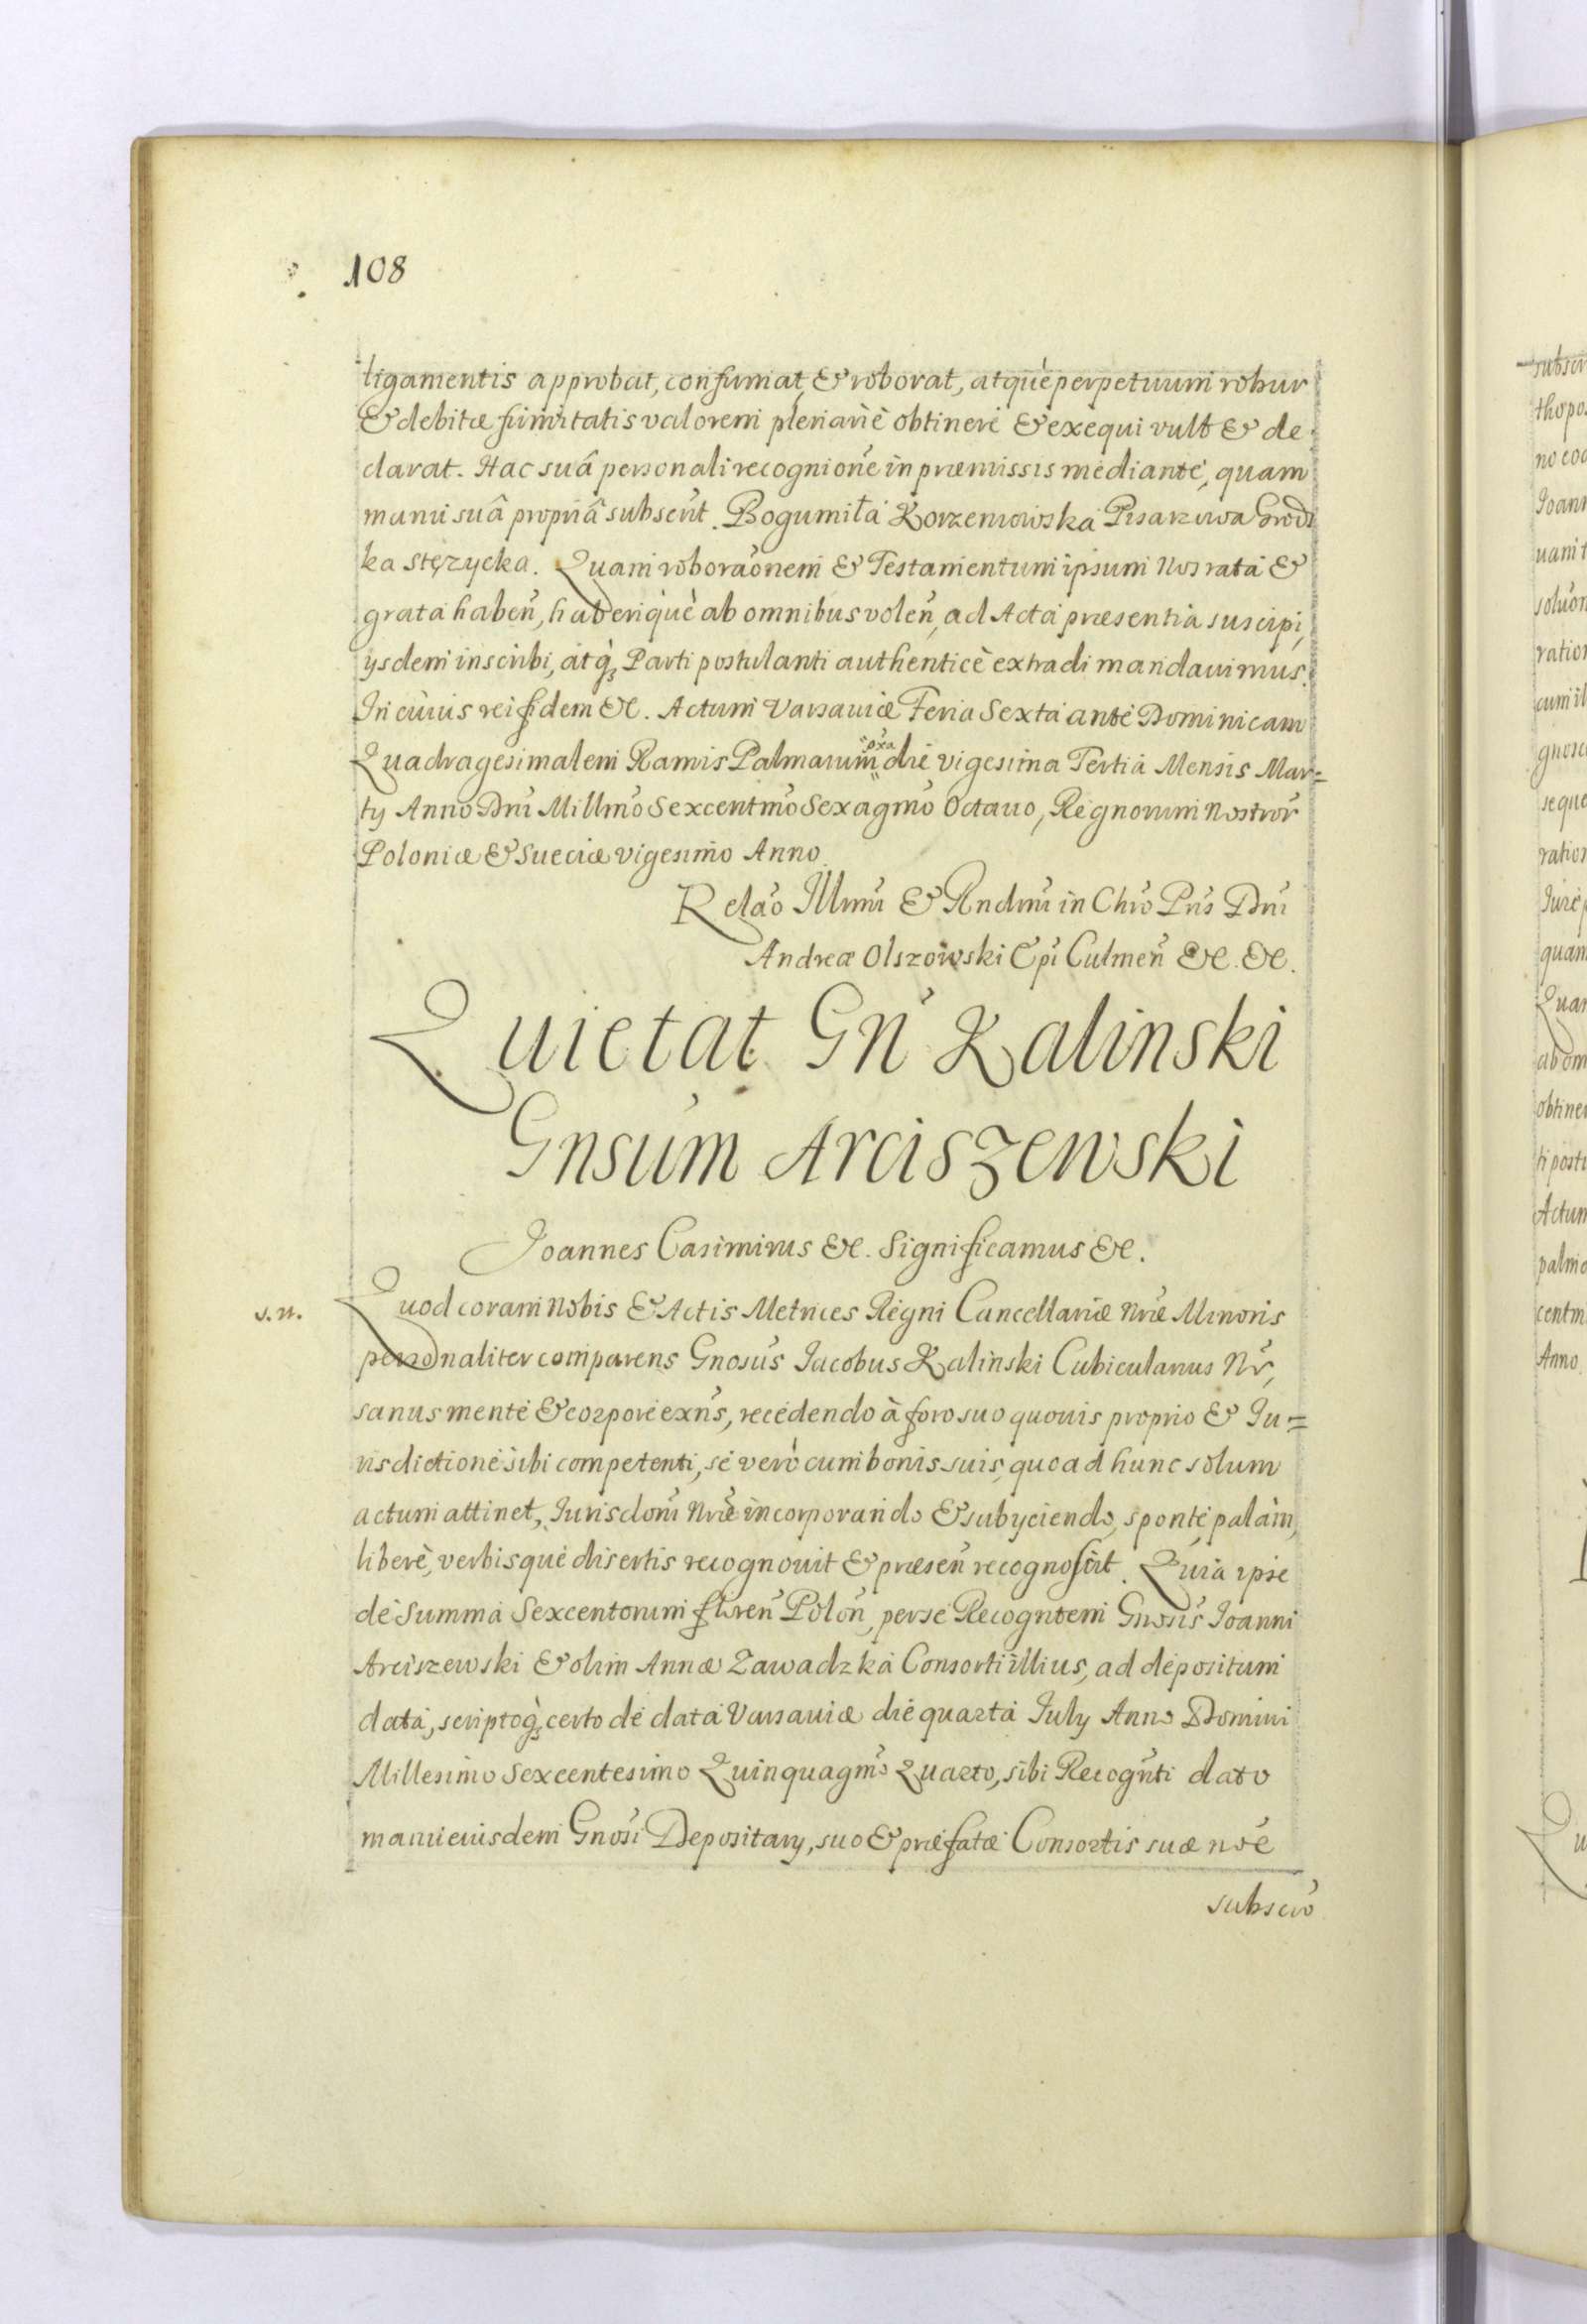 108
ligamentis approbat, confirmat, & roborat, atque perpetuum robur
& debitæ firmitatis valorem plenariè obtinere & exequi vult & de
clarat. Hac suâ personali recognione in præmissis mediante, quam
manu suâ propriâ subscrit. Bogumiła Korzeniowska Pisarzowa Grodz
ka Stęzycka. Quam roboraonem & Testamentum ipsum Nos rata &
grata haben, haberique ab omnibus volen, ad Acta præsentia suscipi,
ysdem inscribi, atq Parti postulanti authenticè extradi mandauimus.
In cuius rei fidem &c. Actum Varsauiæ Feria Sexta ante Dominicam
pxa
Quadragesimalem Ramis Palmarum die vigesima Tertia Mensis Mar=
ty Anno Dni Millmo Sexcentmo Sexagmo Octauo, Regnorum Nostror
Poloniæ & Sueciæ vigesimo Anno
Relao Illmi & Rndmi in Chro Pris Dni
Andreæ Olszowski Epi Culmen &c. &c.
Quietat Gn Kalinski
Gnsum Arciszewski
Joannes Casimirus &c. Significamus &c.
s. n. Quod coram Nobis & Actis Metrices Regni Cancellariæ Nræ Minoris
personaliter comparens Gnosus Jacobus Kalinski Cubicularius Nr,
sanus mente & corpore exns, recedendo à foro suo quouis proprio & Ju=
risdictione sibi competenti, se verò cum bonis suis, quoad hunc solum
actum attinet, Jurisdoni Nræ incorporando & subyciendo, sponte palàm,
liberè, verbisque disertis recognouit & præsen recognoscit. Quia ipse
de Summa Sexcentorum floren Polon, per se Recogntem Gnosis Joanni
Arciszewski & olim Annæ Zawadzka Consorti illius, ad depositum
data, scriptoq certo de data Varsauiæ die quarta July Anno Domini
Millesimo Sexcentesimo Quinquagmo Quarto, sibi Recognti dato
manu eiusdem Gnosi Depositary, suo & præfatæ Consortis suæ noe
subscro